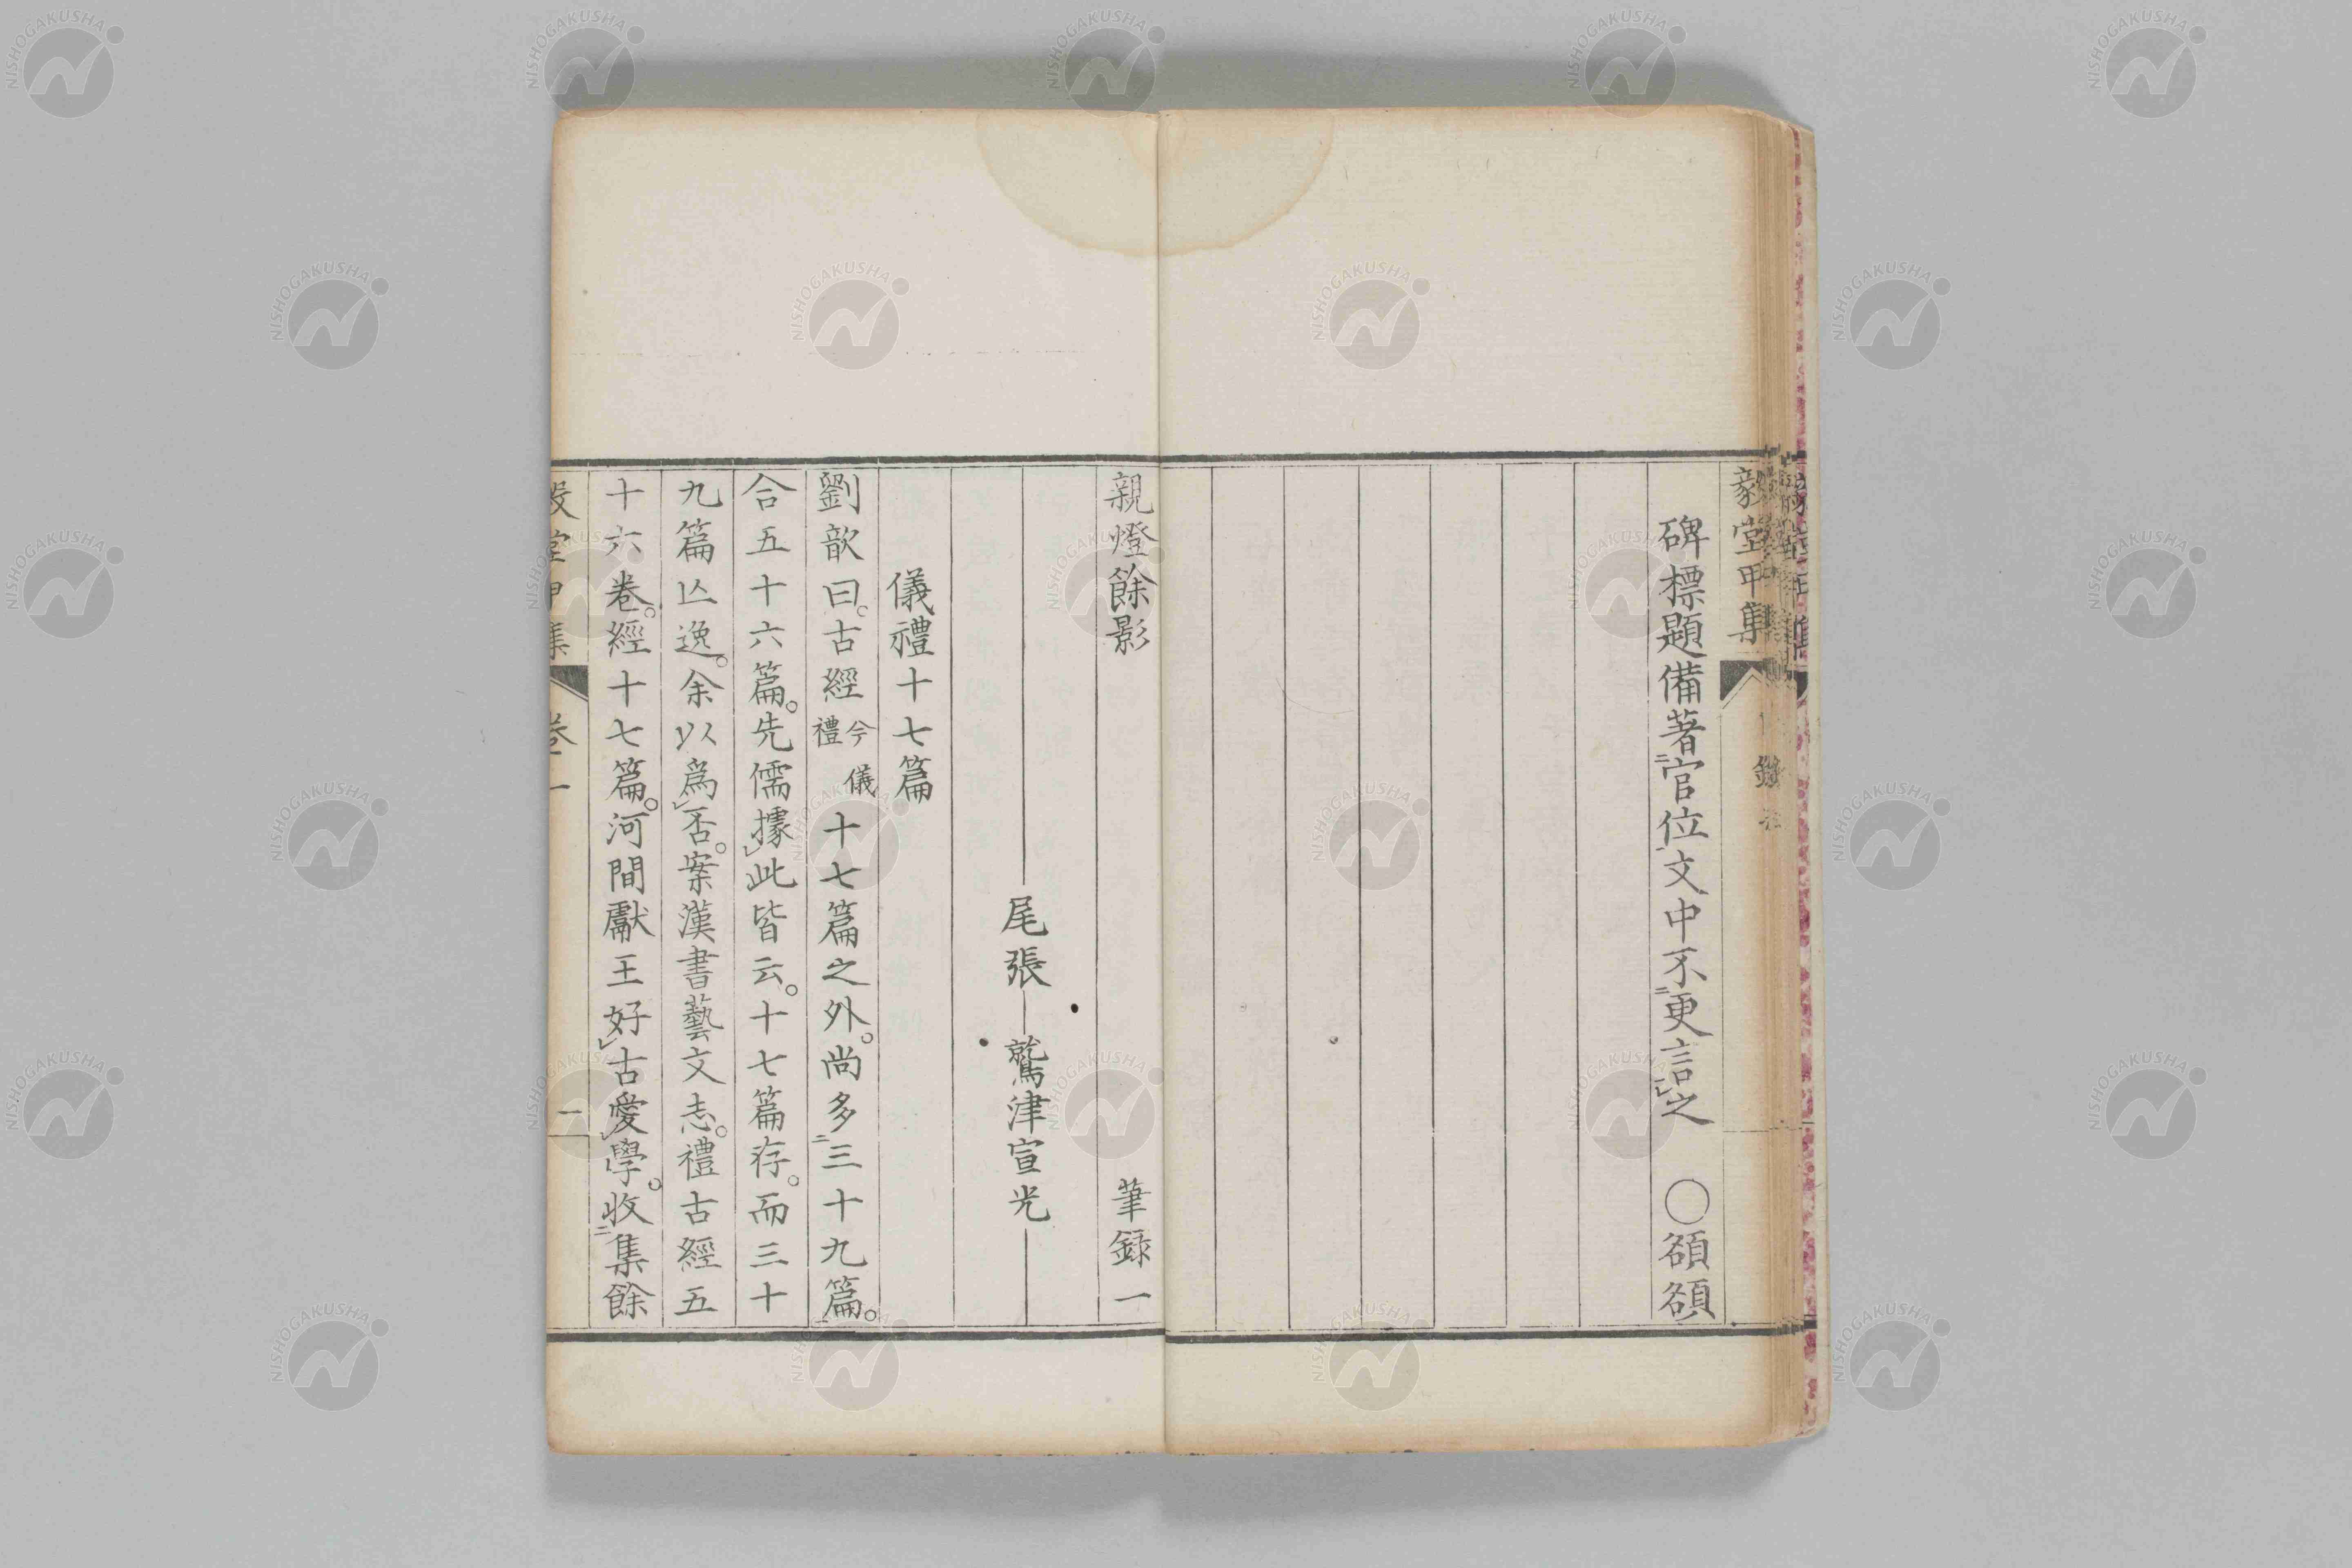 毅堂甲集
碑標題備著官位文中不更言之　〇額額
親燈餘影　筆録一
尾張　鷲津宣光
儀禮十七篇
劉歆曰。古經今儀禮十七篇之外。尚多三十九篇。
合五十六篇。先儒據此皆云。十七篇存。而三十
九篇亾逸。余以爲否。案漢書藝文志。禮古經五
十六卷。經十七篇。河間獻王好古愛學。收集餘
毅堂甲集　卷一　一
NISHOGAKUSHA